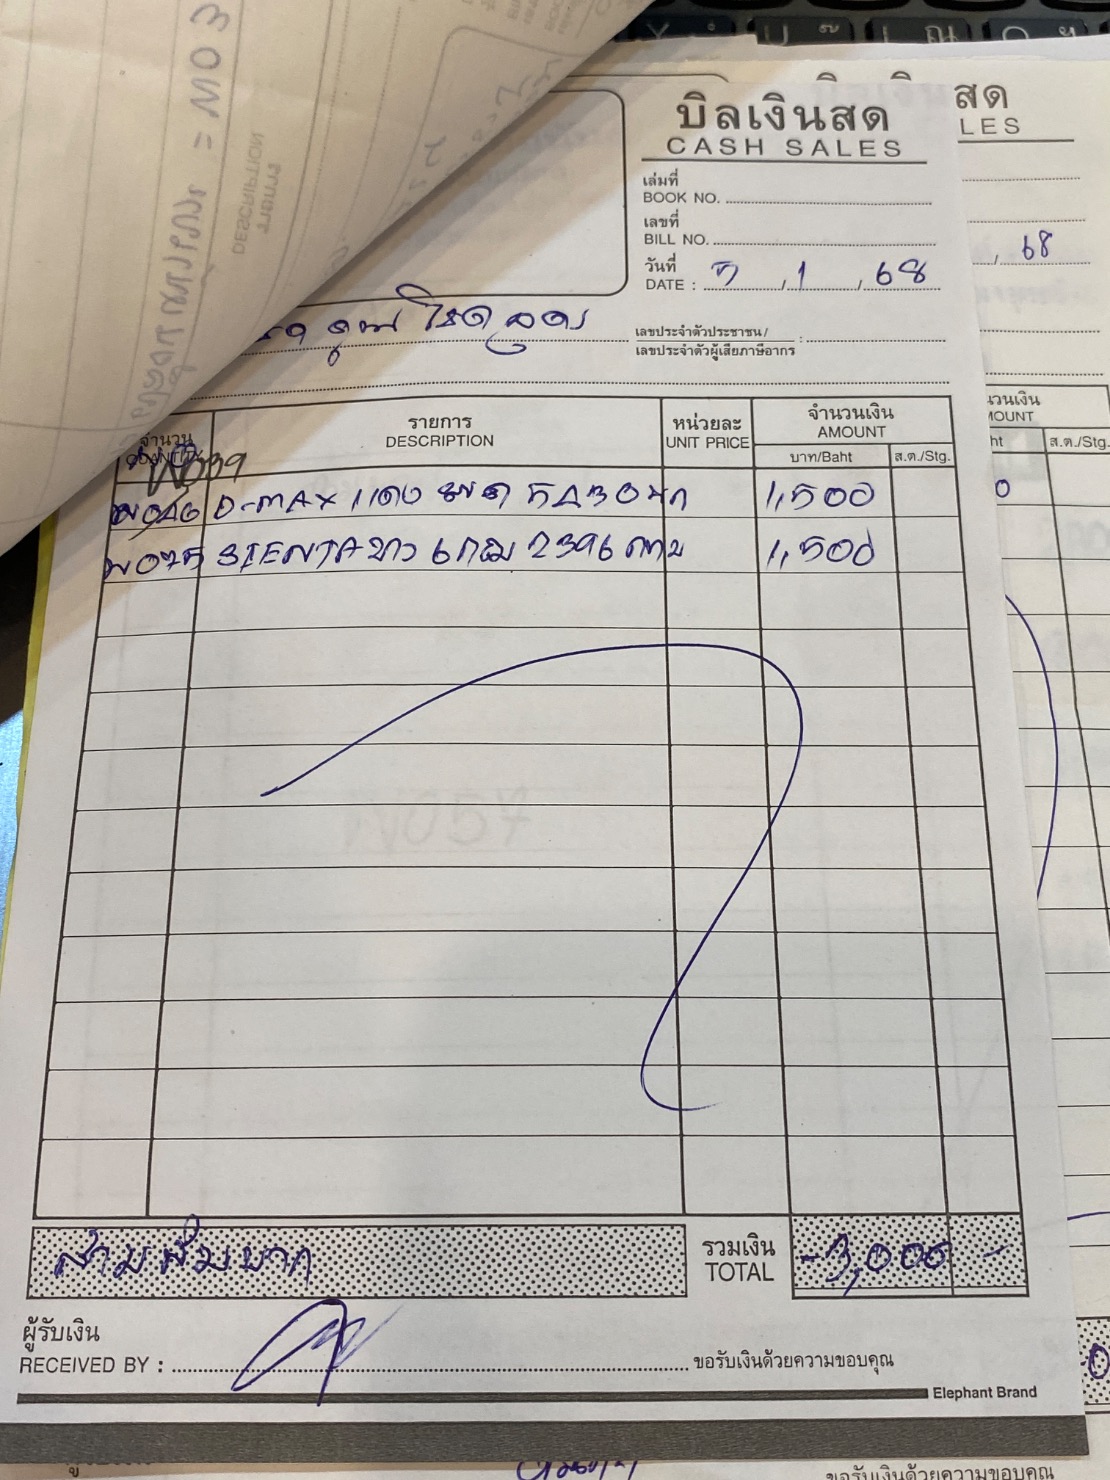 บิลเงินสด
CASH SALES
เล่มที่
BOOK NO.
เลขที่
BILL NO.
วันที่
DATE : 5 / 1 / 68
คุณ โชค
เลขประจำตัวประชาชน /
เลขประจำตัวผู้เสียภาษีอากร :
จำนวน รายการ หน่วยละ จำนวนเงิน
DESCRIPTION UNIT PRICE AMOUNT
บาท/Baht ส.ต./Stg.
W039
D-MAX แดง 1,500
W075 SIENTA ขาว 6กฒ 2396 กทม 1,500
สามพันบาท รวมเงิน -3,000 -
TOTAL
ผู้รับเงิน
RECEIVED BY : ขอรับเงินด้วยความขอบคุณ
Elephant Brand
สด
LES
68
วนเงิน
MOUNT
ht ส.ต./Stg.
0
ขอรับเงินด้วยความขอบคุณ